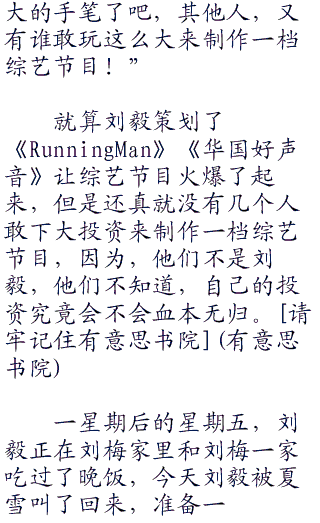 大的手笔了吧，其他人，又
有谁敢玩这么大来制作一档
综艺节目！”
就算刘毅策划了
《RunningMan》《华国好声
音》让综艺节目火爆了起
来，但是还真就没有几个人
敢下大投资来制作一档综艺
节目，因为，他们不是刘
毅，他们不知道，自己的投
资究竟会不会血本无归。[请
牢记住有意思书院](有意思
书院)
一星期后的星期五，刘
毅正在刘梅家里和刘梅一家
吃过了晚饭，今天刘毅被夏
雪叫了回来，准备一